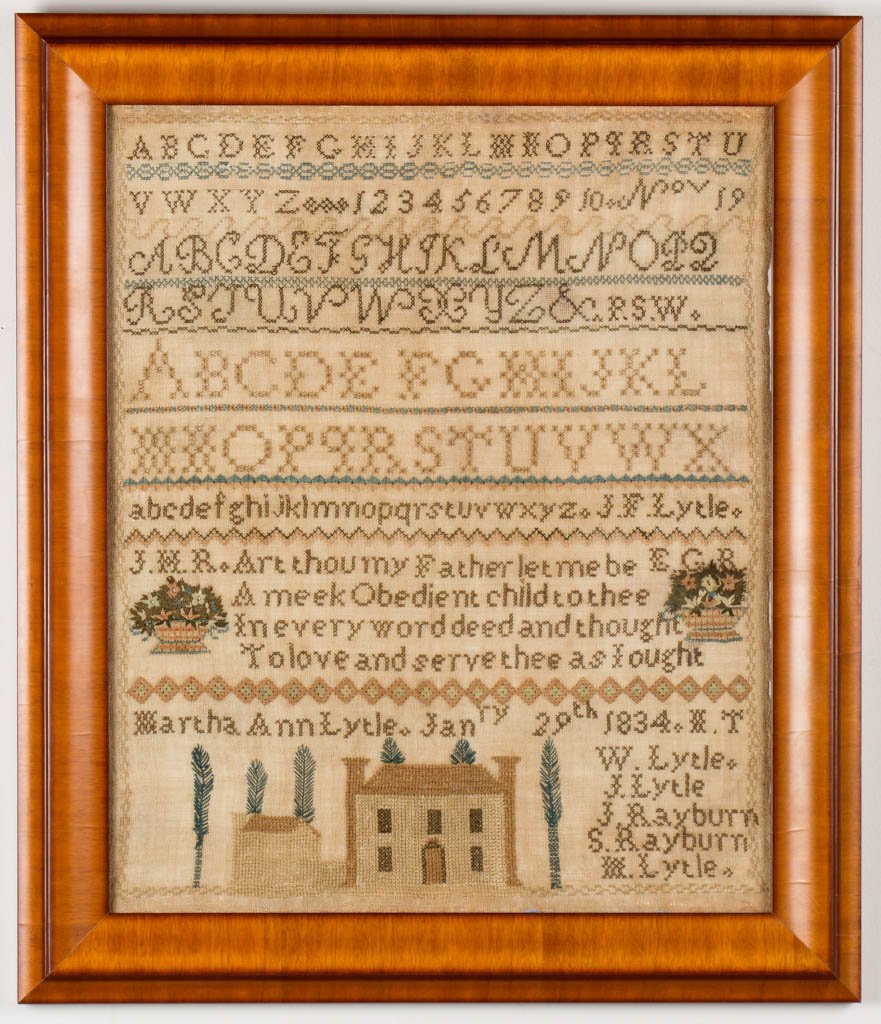 A B C D E F G H I J K L M N O P Q R S T U
V W X Y Z 1 2 3 4 5 6 7 8 9 10 Nov 19
A B C D E F G H I K L M N O P Q
R S T U V W X Y Z & G.R.S.W.
A B C D E F G H I J K L
M N O P Q R S T U V W X
a b c d e f g h i j k l m n o p q r s t u v w x y z. J. F. Lytle.
J. H. R. Art thou my Father let me be E. G. R
A meek Obedient child to thee
In every word deed and thought
To love and serve thee as I ought
Martha Ann Lytle. Janry 29th 1834. N. T
W. Lytle.
J. Lytle
J. Rayburn
S. Rayburn
M. Lytle.